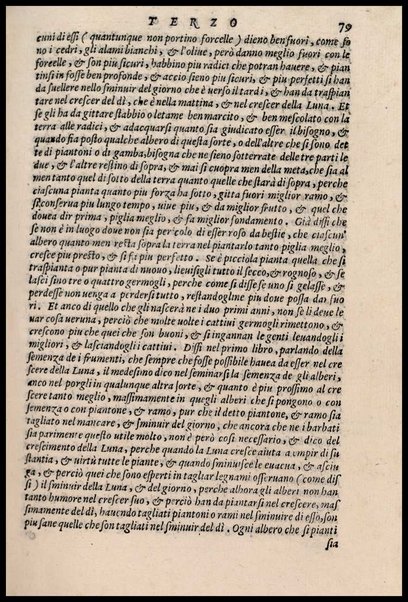 TERZO 79
cuni di essi ( quantunque non portino forcelle ) dieno ben fuori, come so
no i cedri, gli alami bianchi, & l'oliue, però danno meglio fuori con le
forcelle, & son piu sicuri, habbino piu radici che potran hauere, & pian
tinsi in fosse ben profonde, & accio sieno piu sicuri, & piu perfetti si han
da suellere nello sminuir del giorno che è verso il tardi, & han da traspian
tare nel crescer del dì, che è nella mattina, & nel crescer della Luna. Et
se gli ha da gittare stabbio o letame ben marcito, & ben mescolato con la
terra alle radici, & adacquarsi quanto sia giudicato esser il bisogno, &
quando sia posto qualche albero di questa sorte, o dell'altre che si sono det
te di piantoni o di gamba, bisogna che ne sieno sotterrate delle tre parti le
due, & l'altre restino di sopra, & mai si cuopra men della meta, che sia al
men tanto quel di sotto della terra quanto quelle che starà di sopra, perche
ciascuna pianta quanto piu forza ha sotto, gitta fuori miglior ramo, &
si conserua piu lungo tempo, uiue piu, & da miglior frutto, & quel che
doueua dir prima, piglia meglio, & fa miglior fondamento. Già dissi che
se non è in luogo doue non sia pericolo di esser roso da bestie, che ciascun
albero quanto men resta sopra la terra nel piantarlo tanto piglia meglio,
cresce piu presto, & si fa piu perfetto. Se è picciola pianta quella che si
traspianta o pur pianta di nuouo, lieuisigli tutto il secco, & rognoso, & se
lasci sino tre o quattro germogli, perche come si disse se uno si gelasse, &
perdesse non uenga a perdersi tutto, restandogline piu doue possa dar fuo
ri. Et anco di quello che gli nascerà ne i duo primi anni, non se li deue le
uar cosa ueruna, perciò che molte uolte i cattiui germogli rimettono, &
crescono piu che quei che son buoni, & si ingannan le genti leuandogli i
migliori, & lasciandogli i cattiui. Dissi nel primo libro, parlando della
semenza de i frumenti, che sempre che fosse possibile haueua da esser nel cre
scere della Luna, il medesimo dico nel seminarsi la semenza de gli alberi,
anco nel porgli in qualunque altra sorte, & quanto è piu prossimo al cre
scere tanto meglio, massimamente in quegli alberi che si pongono o con
semenza o con piantone, & ramo, pur che il detto piantone, & ramo sia
tagliato nel mancare, & sminuir del giorno, che ancora che ne i barbati
sia parimente questo utile molto, non è però così necessario, & dico del
crescimento della Luna, perche quando la Luna cresce aiuta a empir di su
stantia, & uirtù tutte le piante, & quando sminuisce le euacua, & asciu
ga, & perciò quei che sono esperti in tagliar legnami osseruano ( come dis
si ) il sminuir della Luna, & del giorno, perche alhora gli alberi non han
tanto humore nel crescer suo, & perciò han da piantarsi nel crescere, mas
simamente del dì, hauendo tagliati piantoni o rami nel sminuire di esso, son
piu sane quelle che son tagliati nel sminuir del dì. Ogni albero che si pianti
sia